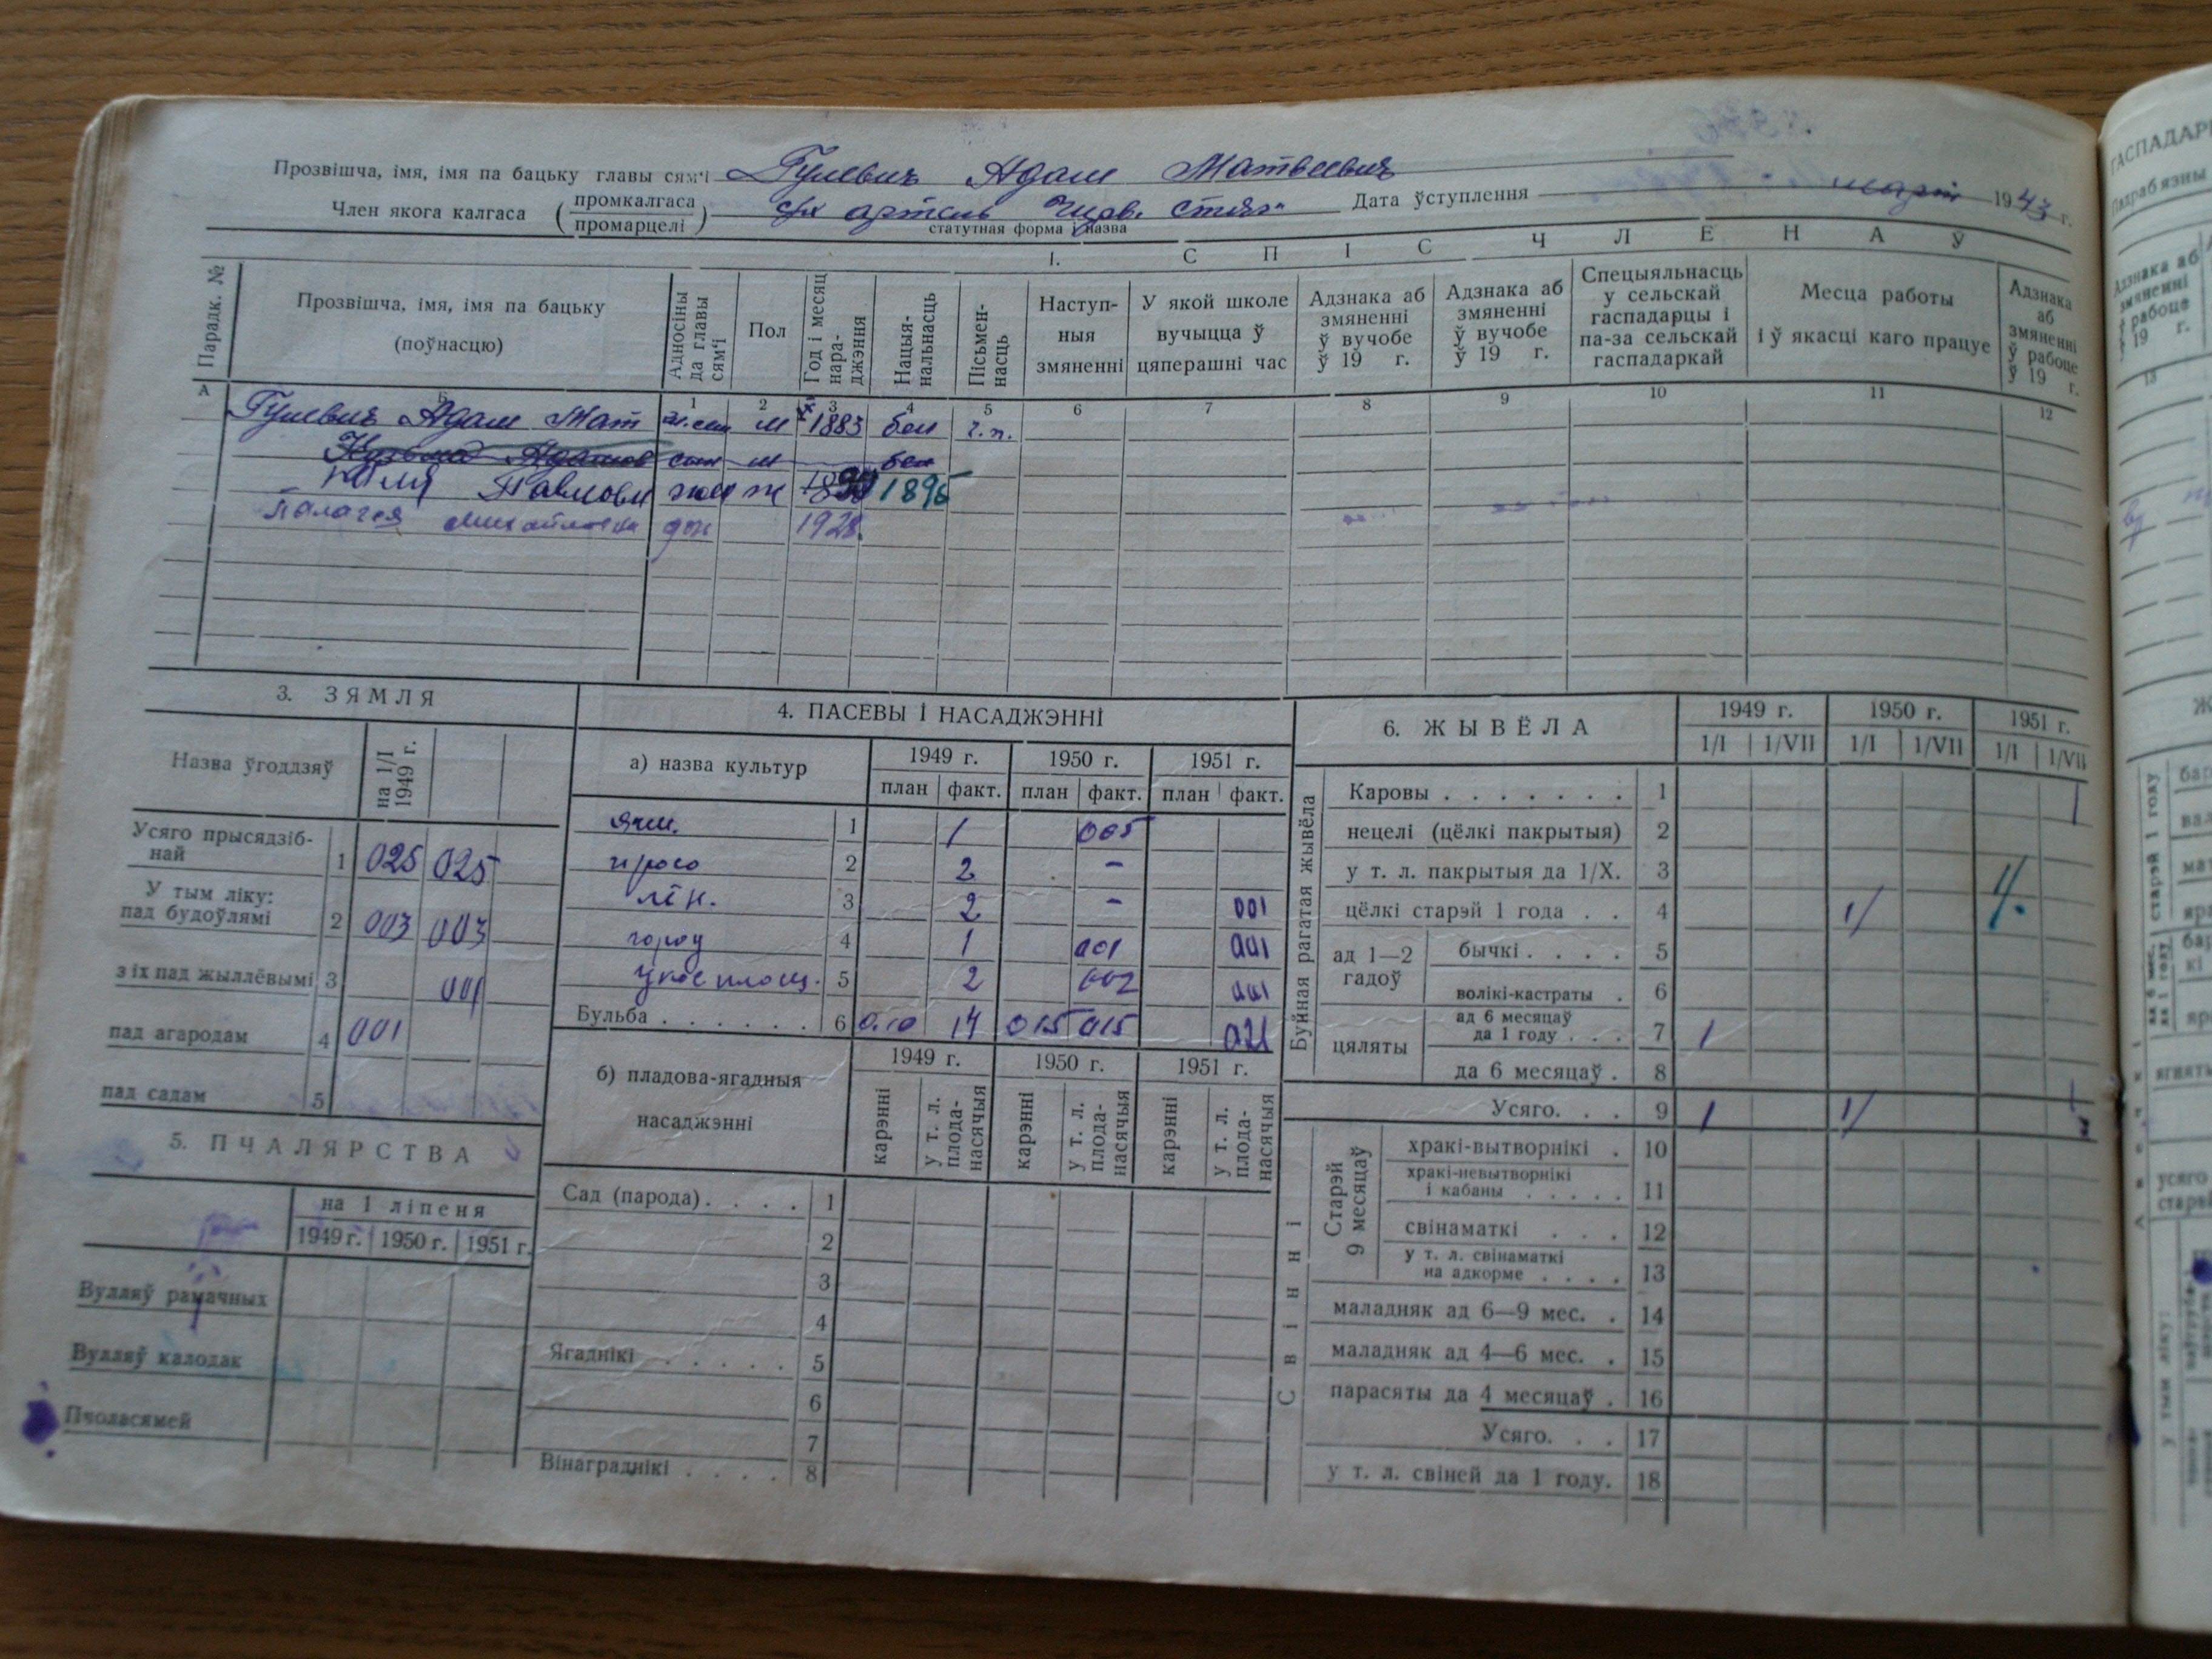 Прозвішча, імя, імя па бацьку главы сям'і Гулевич Адам Матвеевич
Член якога калгаса (промкалгаса промарцелі) с/х артель Черв. Дата ўступлення март 1943 г.
статутная форма і назва
1. СПІС ЧЛЕНАЎ
Парадк. №
Прозвішча, імя, імя па бацьку (поўнасцю)
Адносіны да главы сям'і
Пол
Год і месяц нараджэння
Нацыянальнасць
Пісьменнасць
Наступныя змяненні
У якой школе вучыцца ў цяперашні час
Адзнака аб змяненні ў вучобе ў 19 г.
Адзнака аб змяненні ў вучобе ў 19 г.
Спецыяльнасць у сельскай гаспадарцы і па-за сельскай гаспадаркай
Месца работы і ў якасці каго працуе
Адзнака аб змяненні ў рабоце ў 19 г.
А Б 1 2 3 4 5 6 7 8 9 10 11 12
Гулевич Адам Мат м 1883 бел
сын м бел
Павловн ж 1896
Палагея Михайловна 1928.
3. ЗЯМЛЯ
Назва ўгоддзяў на 1/I 1949 г.
Усяго прысядзібнай 1 025 025
У тым ліку: пад будоўлямі 2 003 003
з іх пад жыллёвымі 3 001
пад агародам 4 001
пад садам 5
4. ПАСЕВЫ І НАСАДЖЭННІ
а) назва культур 1949 г. 1950 г. 1951 г.
план факт. план факт. план факт.
ячм. 1 1 005
просо 2 2 –
лён. 3 2 – 001
город 4 1 001 001
5 2 002 001
Бульба . . . . . . 6 0.10 14 015 015 021
б) пладова-ягадныя насаджэнні
1949 г. 1950 г. 1951 г.
карэнні у т. л. плода-насячыя карэнні у т. л. плода-насячыя карэнні у т. л. плода-насячыя
Сад (парода) . . . . 1
2
3
4
Ягаднікі . . . . . 5
6
7
Вінаграднікі . . . . 8
5. ПЧАЛЯРСТВА
на 1 ліпеня
1949 г. 1950 г. 1951 г.
Вулляў рамачных
Вулляў калодак
Пчоласямей
6. ЖЫВЁЛА
1949 г. 1950 г. 1951 г.
1/I 1/VII 1/I 1/VII 1/I 1/VII
Буйная рагатая жывёла
Каровы . . . . . . . 1 1
нецелі (цёлкі пакрытыя) 2
у т. л. пакрытыя да 1/X. 3
цёлкі старэй 1 года . . 4 1
ад 1—2 гадоў
бычкі . . . . 5
волікі-кастраты . 6
цяляты
ад 6 месяцаў да 1 году . . . 7 1
да 6 месяцаў . 8
Усяго. . . 9 1 1
Свінні
Старэй 9 месяцаў
хракі-вытворнікі . 10
хракі-невытворнікі і кабаны . . . . . 11
свінаматкі . . . 12
у т. л. свінаматкі на адкорме . . . . 13
маладняк ад 6—9 мес. . 14
маладняк ад 4—6 мес. . 15
парасяты да 4 месяцаў . 16
Усяго. . . 17
у т. л. свіней да 1 году. 18